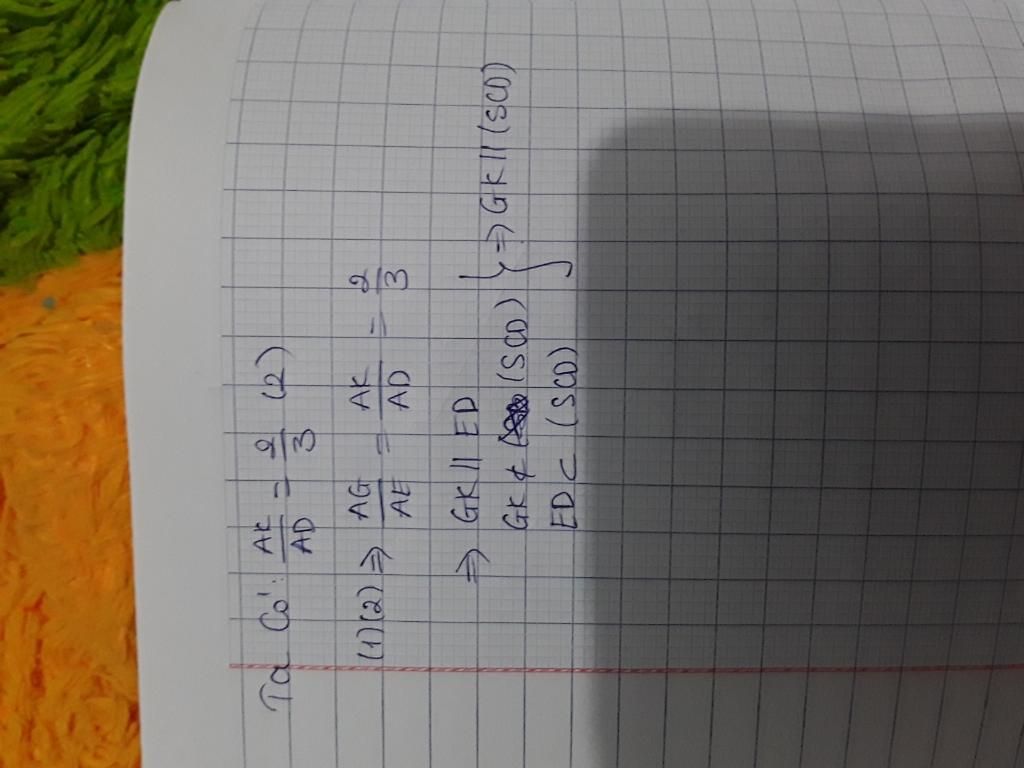 Ta có: AK/AD = 2/3 (2)
(1)(2) ⇒ AG/AE = AK/AD = 2/3
⇒ GK // ED
GK ⊄ (SCD) } ⇒ GK // (SCD)
ED ⊂ (SCD)